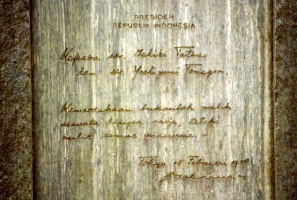 PRESIDEN
REPUBLIK INDONESIA
Kepada sdr. Ichiki Tatsuo
dan sdr. Yoshizumi Tomegoro.
Kemerdekaan bukanlah milik
sesuatu bangsa saja, tetapi
milik semua manusia. -
Tokyo 15 Februari 1958
Soekarno. -